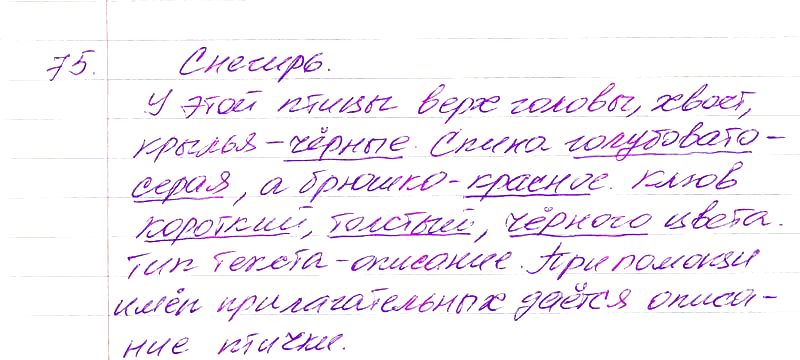 75. Снегирь.
У этой птицы верх головы, хвост,
крылья – чёрные. Спина голубовато-
серая, а брюшко – красное. Клюв
короткий, толстый, чёрного цвета.
Тип текста – описание. При помощи
имён прилагательных даётся описа-
ние птички.